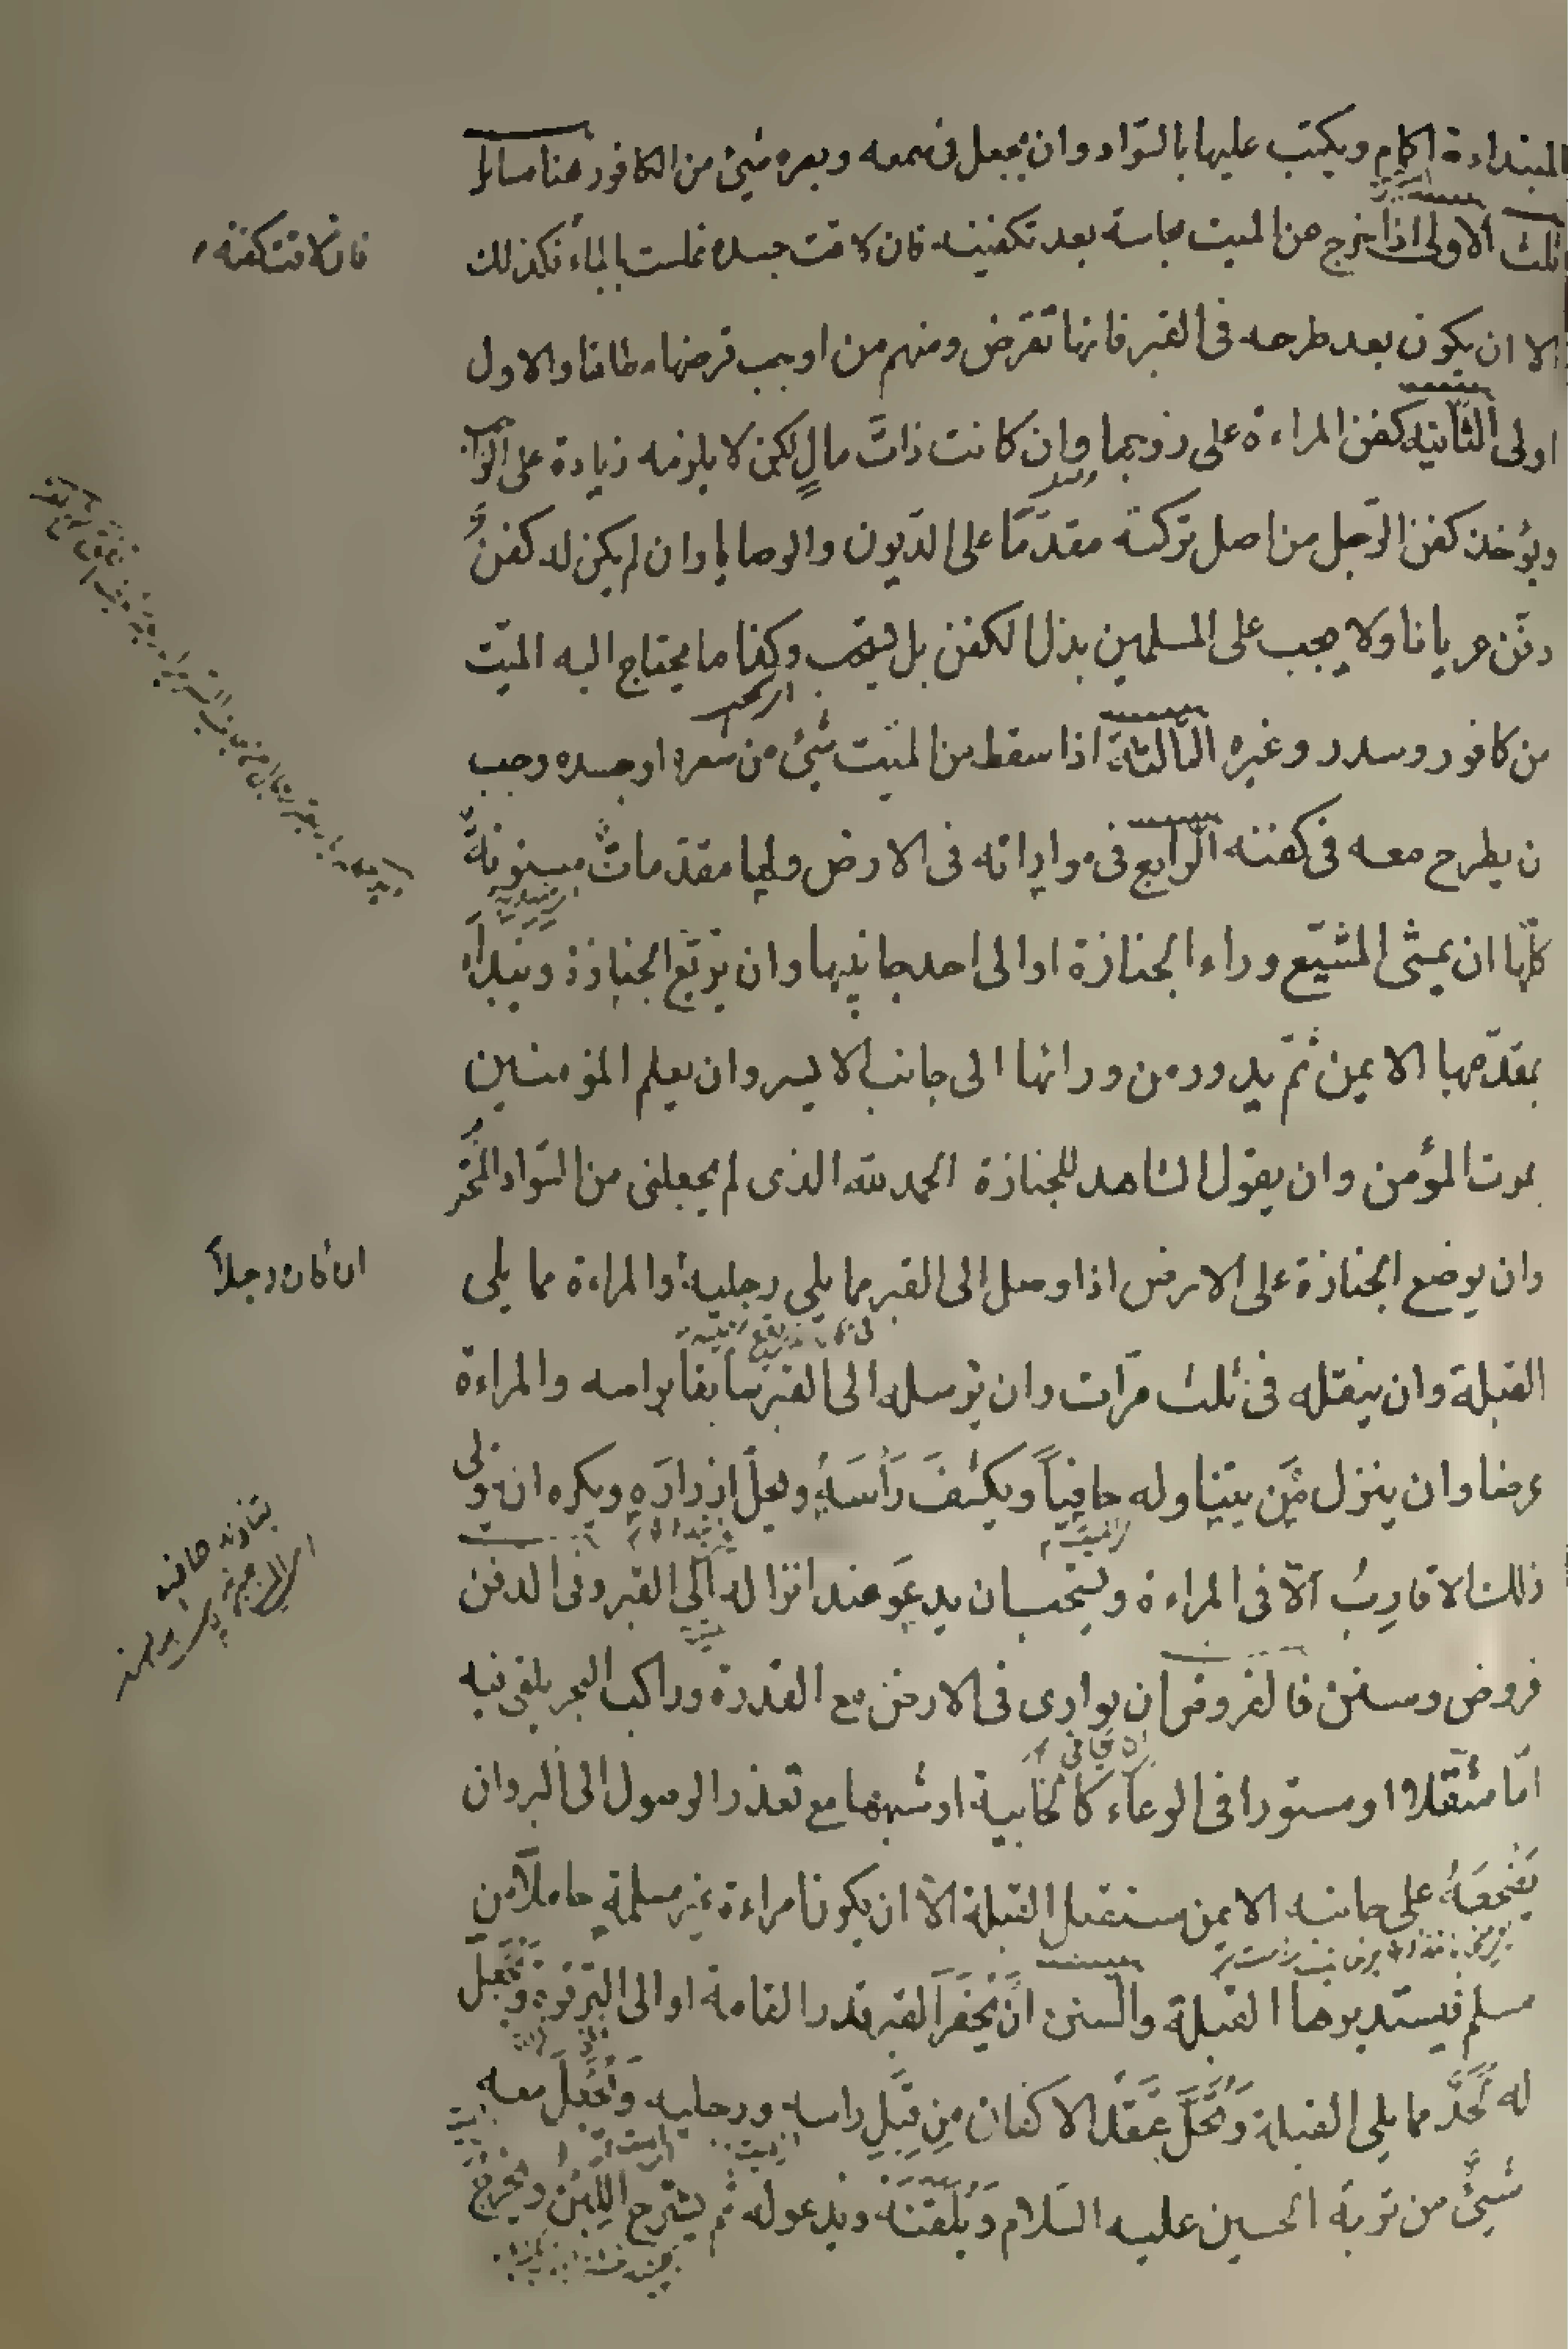 المبتداءة الاكام ويكتب عليها بالسّواد وان يجعل فى سمعه وبصره شيئ من الكافور هنا مسائل
ثلث الاولى اذا خرج من الميت نجاسة بعد تكفينه فان لاقت جسده غسلت بالماء فكذلك
فان لاقت كفنه
الا ان يكون بعد طرحه فى القبر فانها تقرض ومنهم من اوجب قرضها مطلقا والاول
اولى الثّانيه كفن المراءة على زوجها وان كانت ذات مالٍ لكن لا يلزمه زيادة على الواجب
ويؤخذ كفن الرّجل من اصل تركته مقدّمًا على الدّيون والوصايا وان لم يكن له كفنٌ
دفن عريانا ولا يجب على المسلمين بذل الكفن بل يستحب وكذا ما يحتاج اليه الميّت
من كافور وسدر وغيره الثّالثة اذا سقط من الميّت شيئ من شعره او جسده وجب
ن يطرح معه فى كفنه الرّابع فى مواراته فى الارض ولها مقدّماتٌ مسنونةٌ
كلّها ان يمشى المشيّع وراء الجنازة او الى احد جانبيها وان يربّع الجنازة ويبداء
بمقدّمها الايمن ثمّ يدور من ورائها الى جانب الايسر وان يعلم المؤمنين
بموت المؤمن وان يقول الشاهد للجنازة الحمد لله الذى لم يجعلنى من السّواد المخترم
وان يوضع الجنازة على الارض اذا وصل الى القبر مما يلى رجليه والمراءة مما يلى
ان كان رجلاً
القبلة وان ينقله فى ثلث مرّات وان يرسله الى القبر سابقا براسه والمراءة
عرضا وان ينزل مَن يتناوله حافياً ويكشفَ رَأسَهُ ويحلّ ازرارَه ويكره ان يتولى
ذلك الاقاربُ الّا فى المراءة ويستحب ان يدعوَ عند انزاله الى القبر وفى الدفن
فروض وسنن فالفروض ان يوارى فى الارض مع القدرة وراكب البحر يلقى فيه
امّا مثقّلا او مستورا فى الوعاء كالخابية او شبهها مع تعذر الوصول الى البر وان
يضجعَهُ على جانبه الايمن مستقبل القبلة الّا ان يكون امراءة غير مسلمةٍ حاملاً من
مسلم فيستدبر بها القبلة والسّنن ان يُحفَرَ القبر قدر القامة او الى التّرقوة ويُجعَلَ
له لَحدٌ مما يلى القبلة وَتُحَلَّ عُقَدُ الاكفان مِن قِبَلِ راسه ورجليه وَيُجعَلَ معه
شيئٌ من تربة الحسين عليه السّلام وَيُلَقّنَهُ ويدعو له ثم يشرج اللّبن ويخرج